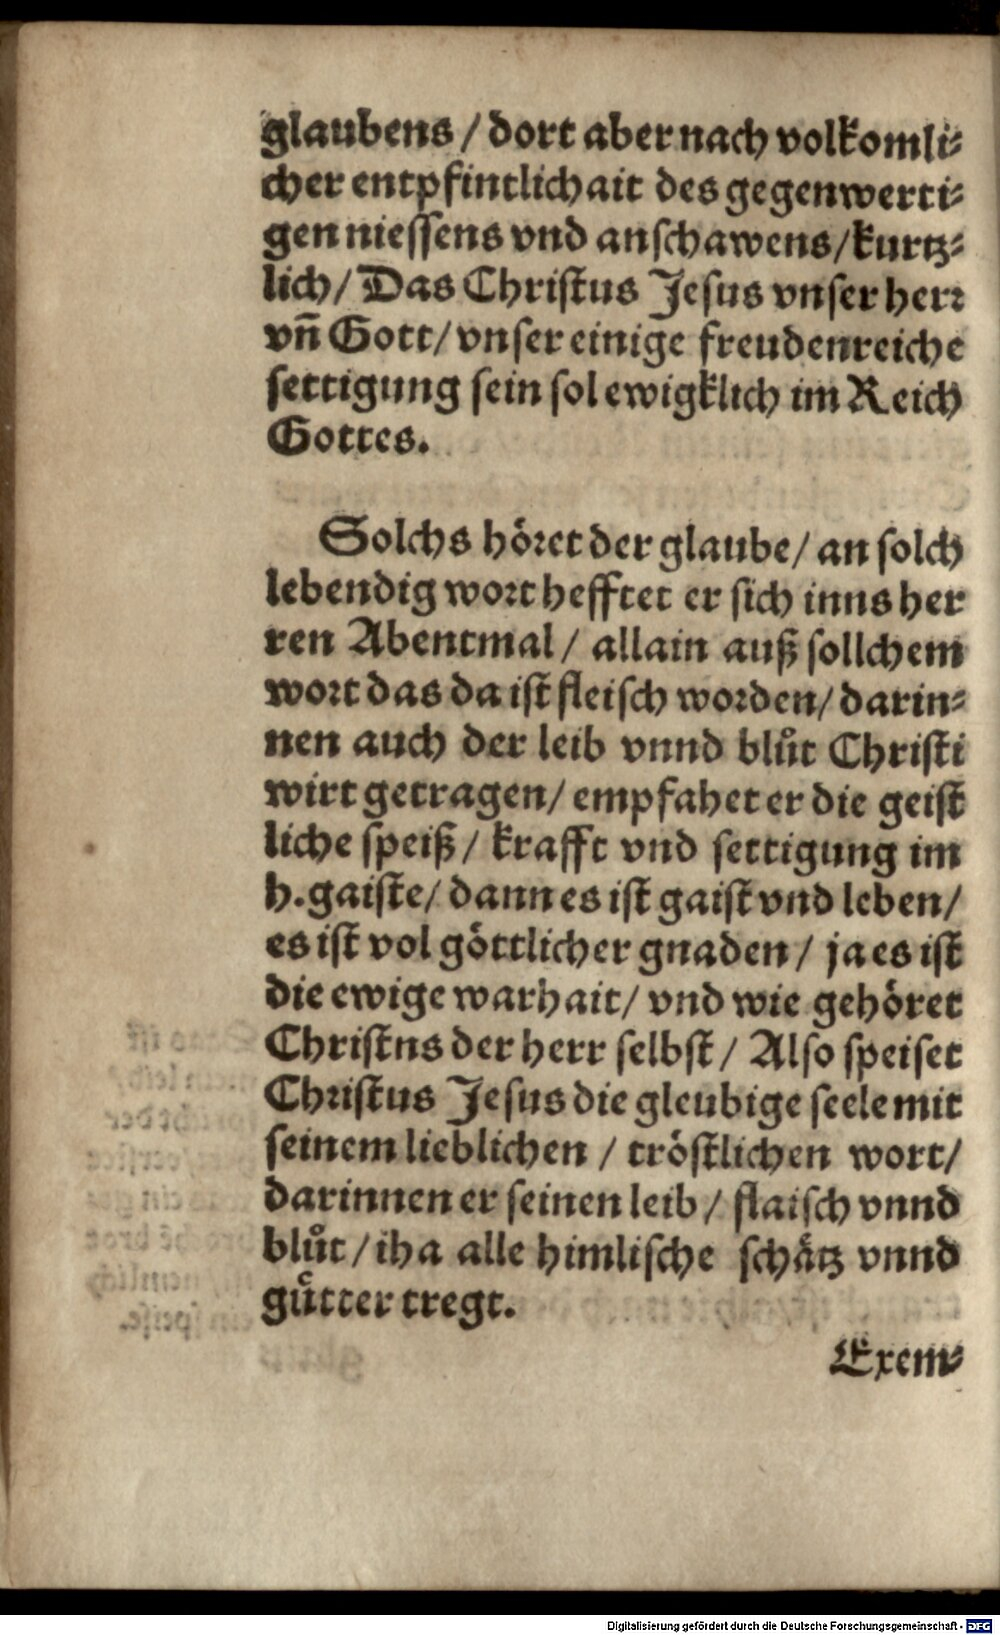 glaubens / dort aber nach volkomli⸗
cher entpfintlichait des gegenwerti⸗
gen niessens vnd anschawens / kurtz⸗
lich / Das Christus Jesus vnser herr
vñ Gott / vnser einige freudenreiche
settigung sein sol ewigklich im Reich
Gottes.
Solchs höret der glaube / an solch
lebendig wort hefftet er sich inns her
ren Abentmal / allain auß sollchem
wort das da ist fleisch worden / darin⸗
nen auch der leib vnnd blůt Christi
wirt getragen / empfahet er die geist
liche speiß / krafft vnd settigung im
h. gaiste / dann es ist gaist vnd leben /
es ist vol göttlicher gnaden / ja es ist
die ewige warhait / vnd wie gehöret
Christns der herr selbst / Also speiset
Christus Jesus die gleubige seele mit
seinem lieblichen / tröstlichen wort /
darinnen er seinen leib / flaisch vnnd
blůt / iha alle himlische schätz vnnd
gütter tregt.
Exem⸗
Digitalisierung gefördert durch die Deutsche Forschungsgemeinschaft - DFG